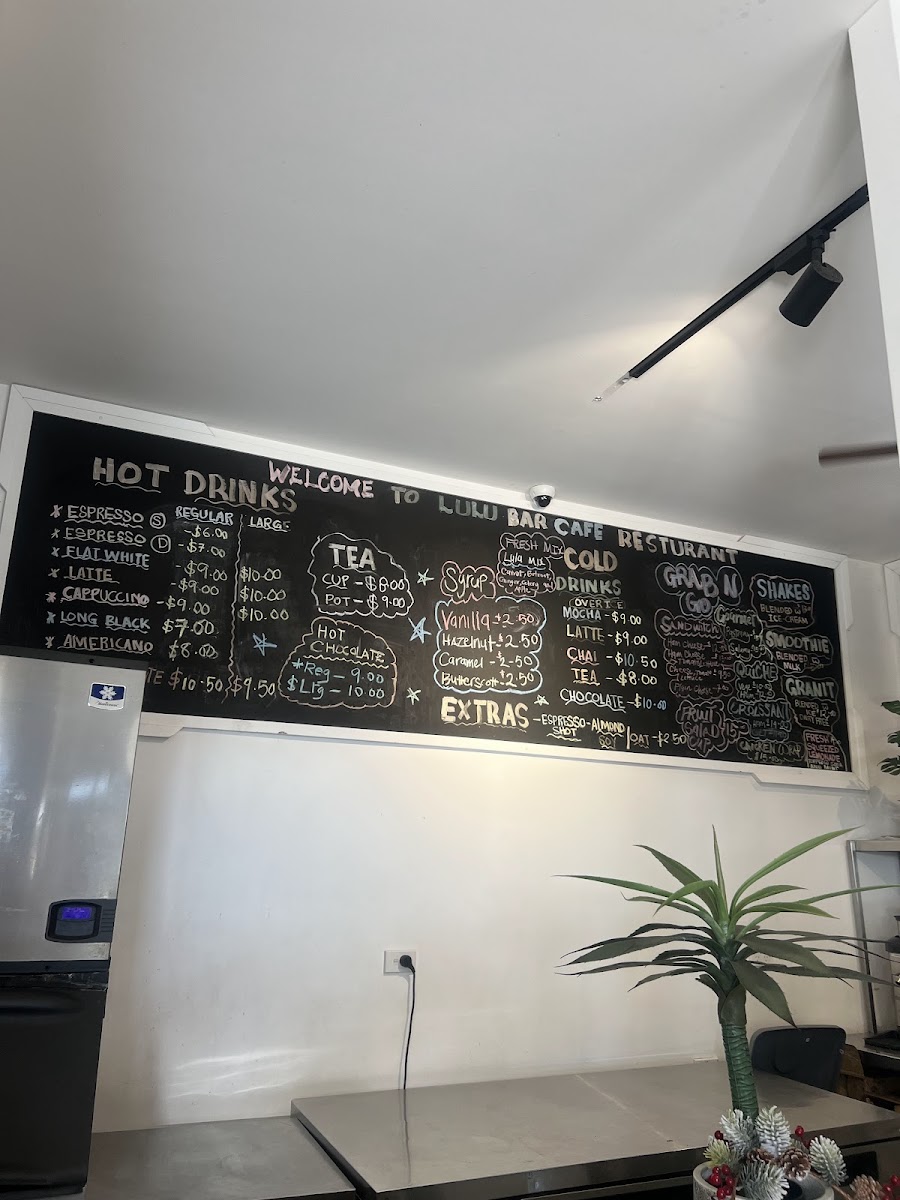 WELCOME TO LULU BAR CAFE RESTURANT
HOT DRINKS
REGULAR LARGE
* ESPRESSO (S) - $6.00
* ESPRESSO (D) - $7.00
* FLAT WHITE - $9.00 $10.00
* LATTE - $9.00 $10.00
* CAPPUCCINO - $9.00 $10.00
* LONG BLACK $7.00
* AMERICANO $8.00
TE $10.50 $9.50
TEA
CUP - $8.00
POT - $9.00
HOT
CHOCOLATE
*Reg - 9.00
$Lrg - 10.00
FRESH MIX
Lulu Mix
Syrup
Vanilla $2.50
Hazelnut - $2.50
Caramel - $2.50
Butterscott $2.50
EXTRAS - ESPRESSO SHOT - ALMOND SOY / OAT - $2.50
COLD
DRINKS
(OVER ICE
MOCHA - $9.00
LATTE - $9.00
CHAI - $10.50
TEA - $8.00
CHOCOLATE - $10.00
GRAB N
GO
SANDWITCH
FRUIT
SALAD $15
CUP
Gourmet
QUICHE
CROISSANT
CHICKEN
SHAKES
BLENDED
ICE CREAM
SMOOTHIE
BLENDED
MILK
GRANIT
FRESH
SQUEEZED
LEMONADE